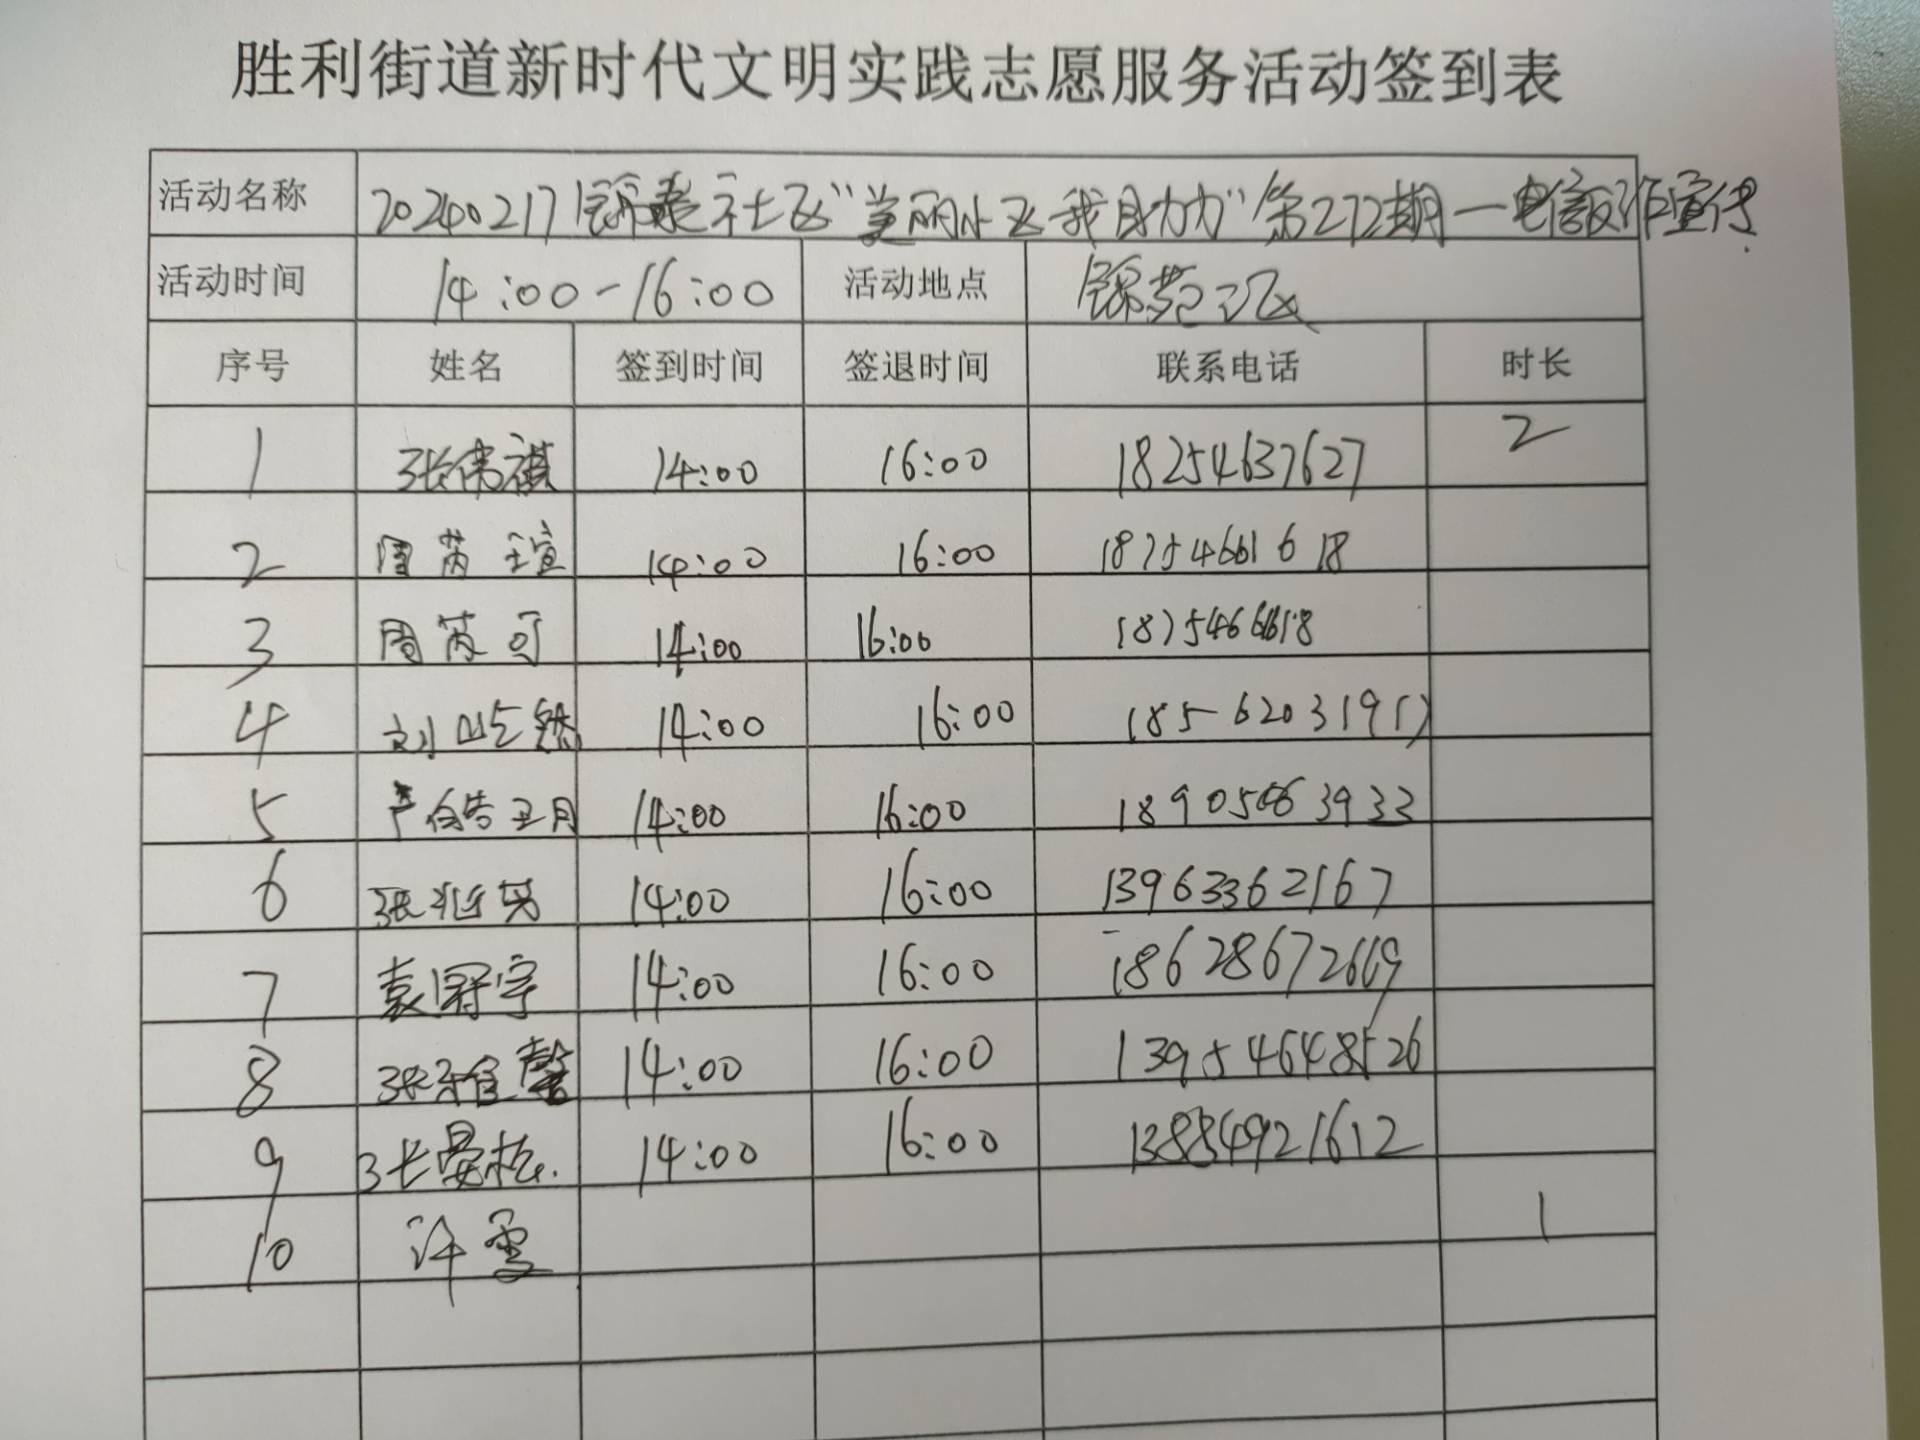 胜利街道新时代文明实践志愿服务活动签到表
活动名称 20240217锦苑社区“美丽小区我助力”第272期一电信诈宣传
活动时间 14:00-16:00 活动地点 锦苑二区
序号 姓名 签到时间 签退时间 联系电话 时长
1 张伟祺 14:00 16:00 18254637627 2
2 周芮瑄 14:00 16:00 18754661618
3 周芮可 14:00 16:00 18754661618
4 刘屹 14:00 16:00
5 严皓玥 14:00 16:00 18905463933
6 张兆 14:00 16:00 13963362167
7 袁冠宇 14:00 16:00 18628672669
8 张雅馨 14:00 16:00 13954648526
9 张晏松 14:00 16:00 13854921612
10 许雪 1